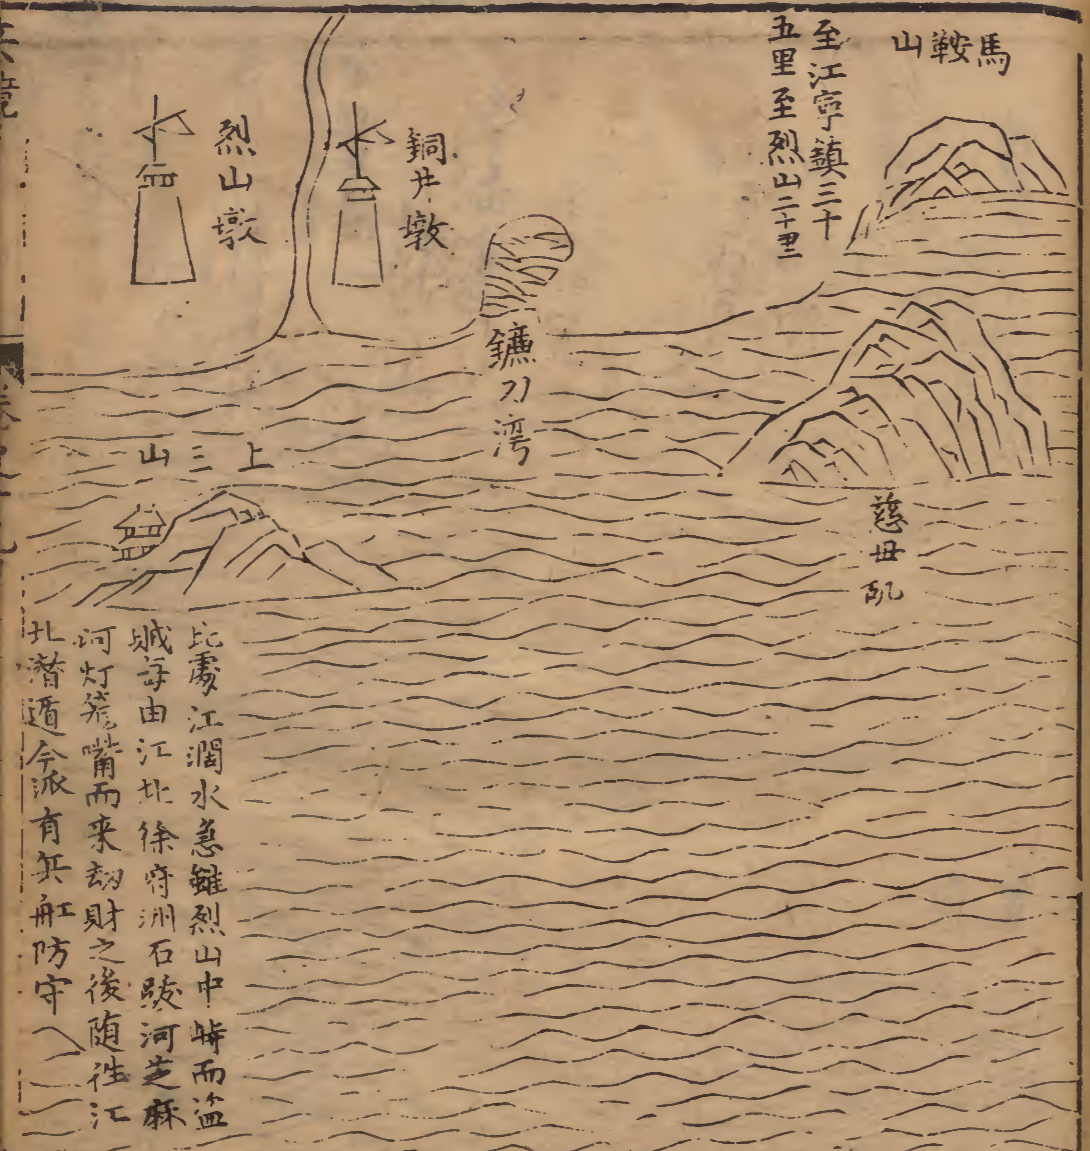 馬鞍山
至江寧鎮三十
五里至烈山二十里
慈母磯
鐮刀湾
銅井墩
烈山墩
上三山
此處江濶水急雖烈山中峙而盜
賊每由江北徐府洲石跋河芝麻
河灯籠嘴而来劫財之後随徃江
北潜遁今派有兵舡防守
兵鏡